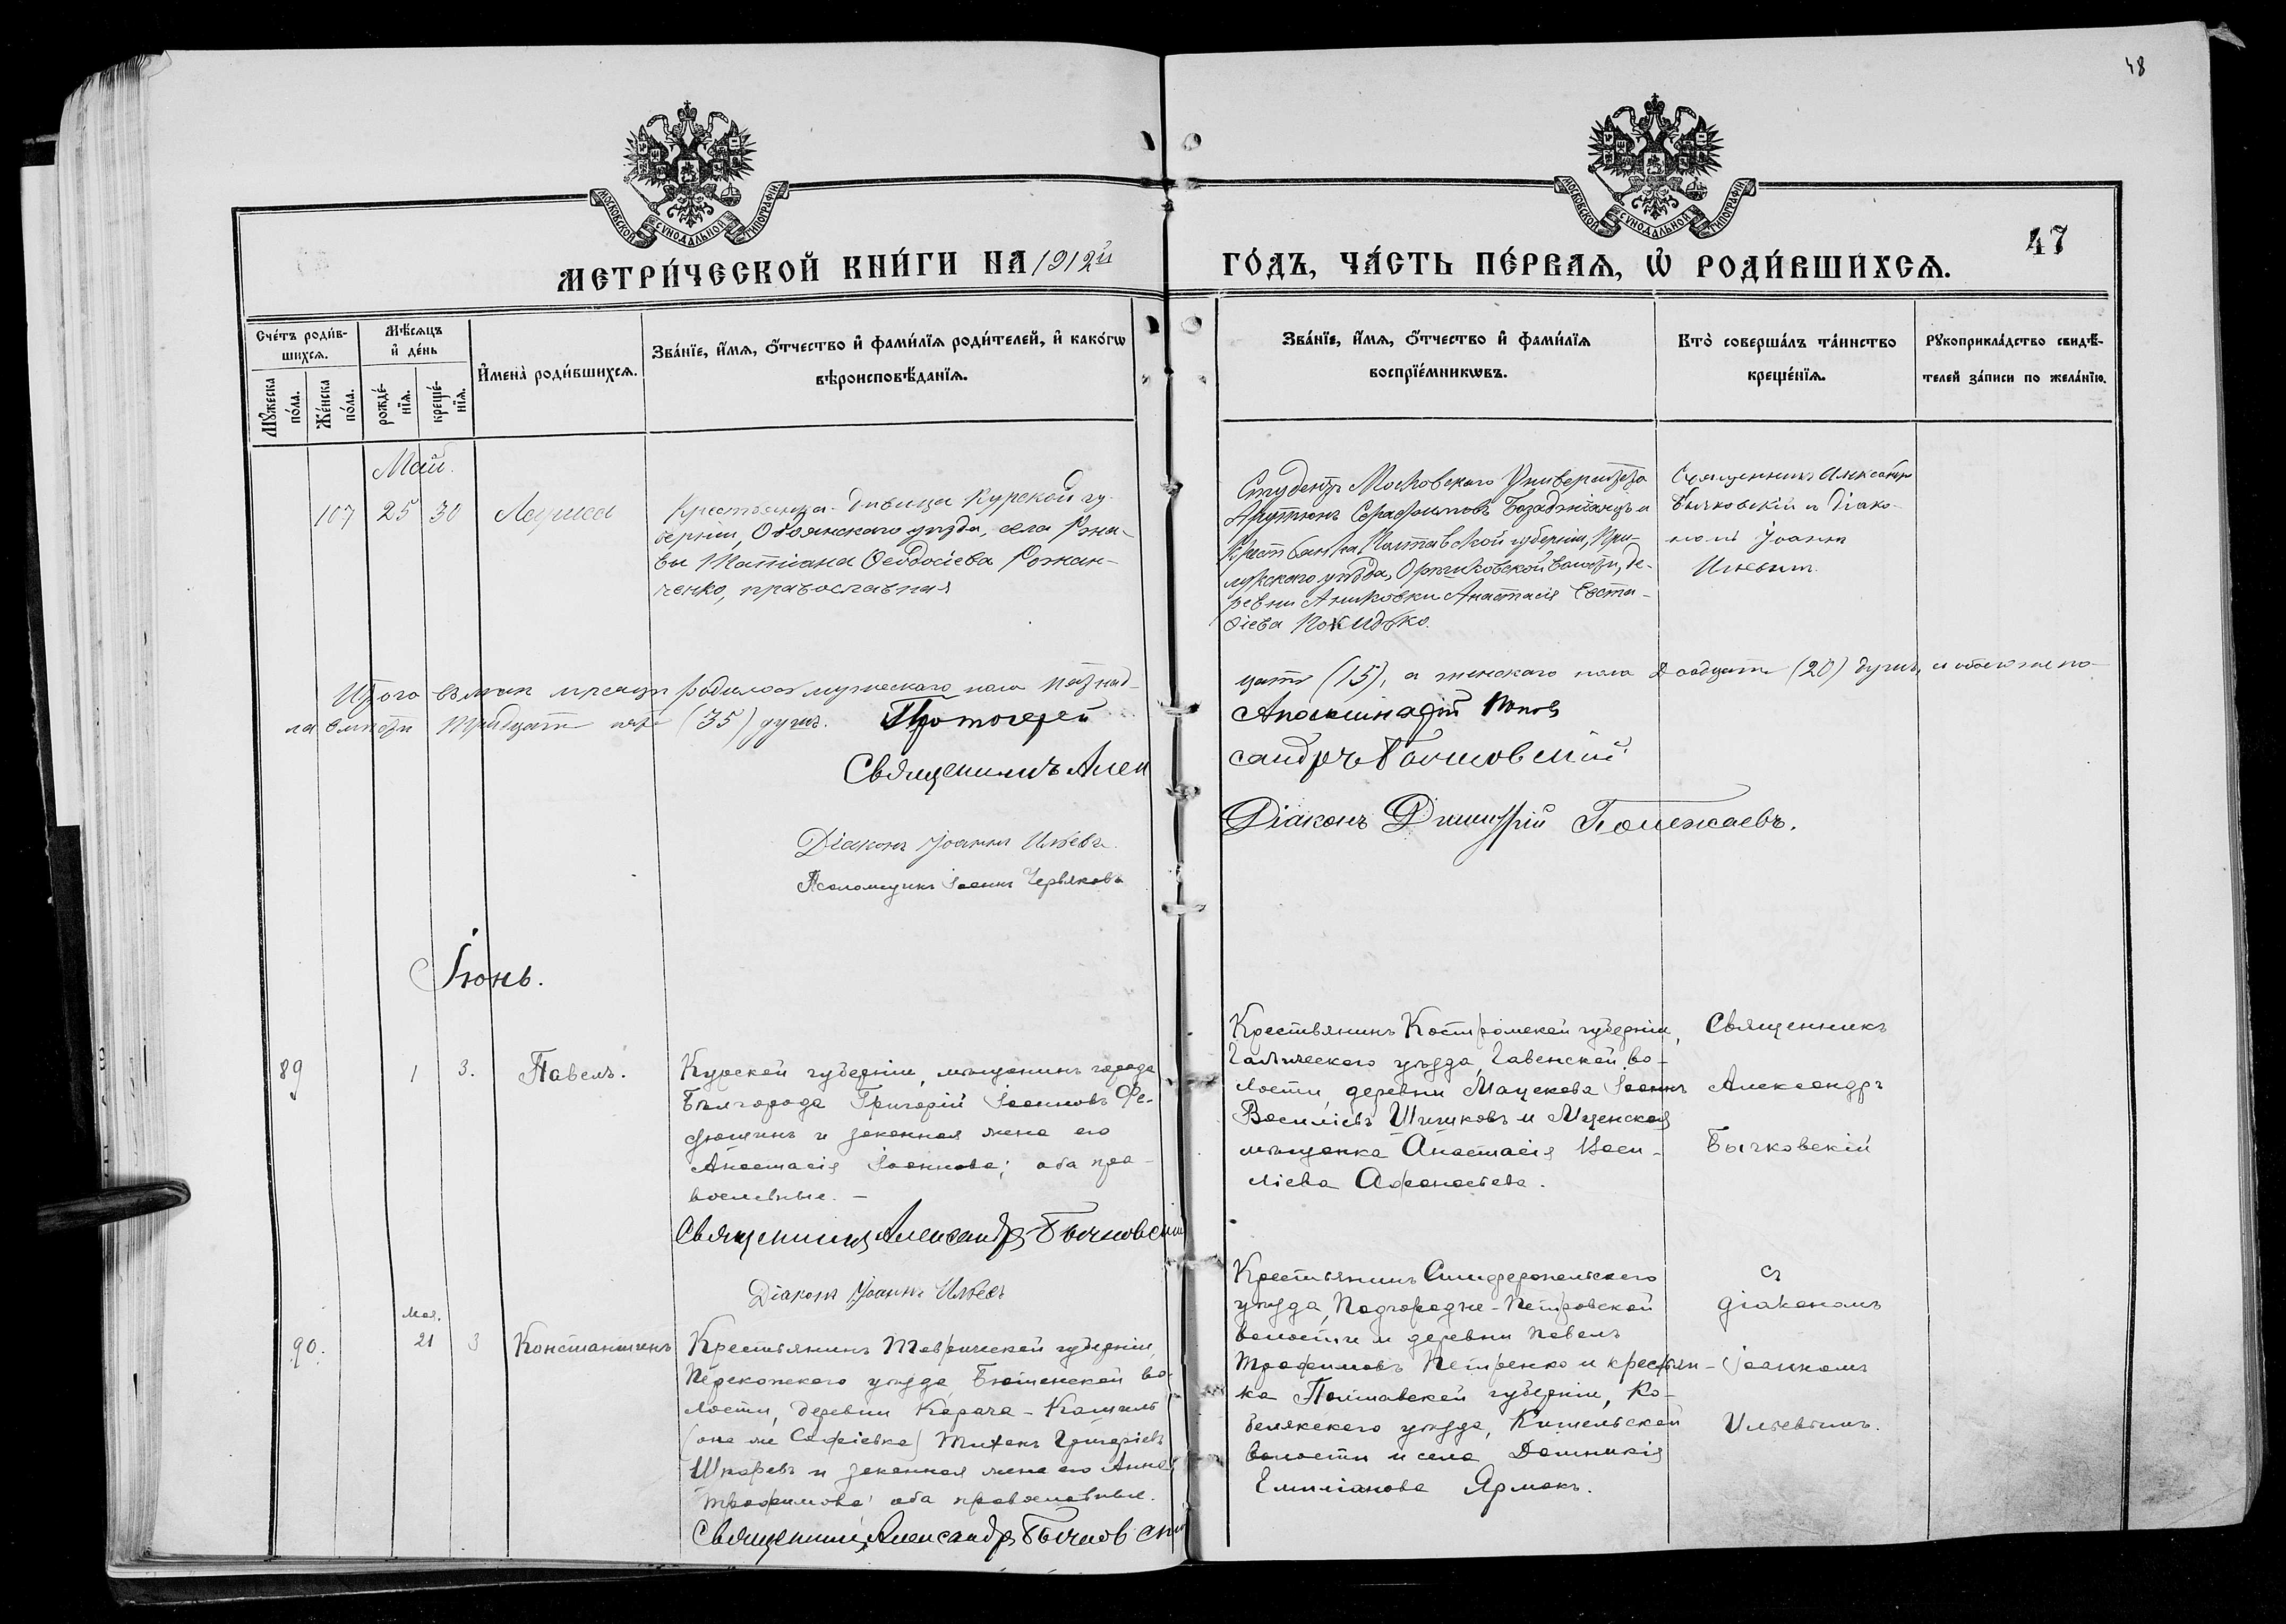 48
МОСКОВСКОЙ СѴНОДАЛЬНОЙ ТИПОГРАФІИ
МОСКОВСКОЙ СѴНОДАЛЬНОЙ ТИПОГРАФІИ
МЕТРИ́ЧЕСКОЙ КНИ́ГИ НА 1912й
ГО́ДЪ, ЧА́СТЬ ПЕ́РВАѦ, Ѡ҆ РОДИ́ВШИХСѦ.
47
Сче́тъ роди́в-
шихсѧ.
Мꙋ́жеска
по́ла.
Же́нска
по́ла.
Мѣ́сѧцъ
и҆ де́нь
рожде́-
нїѧ.
креще́-
нїѧ.
И҆мена̀ роди́вшихсѧ.
Зва́нїе, и҆́мѧ, ѻ҆́тчество и҆ фами́лїѧ роди́телей, и҆ како́гѡ
вѣроисповѣ́данїѧ.
Зва́нїе, и҆́мѧ, ѻ҆́тчество и҆ фами́лїѧ
воспрїе́мникѡвъ.
Кто̀ соверша́лъ та́инство
креще́нїѧ.
Рꙋкоприкла́дство свидѣ́-
телей за́писи по жела́нїю.
Май.
107 25 30 Лариса
Крестьянка-дѣвица Курской гу-
берніи, Обоянскаго уѣзда, села Ржа-
вы Татіана Ѳеодосіева Рожан-
ченко, православная
Студентъ Московскаго Университета
Арутюнъ Серафимовъ Базаджіанцъ и
крестьянка Полтавской губерніи, При-
лукскаго уѣзда, волости, де-
ревни Аниковки Анастасія Евста-
фіева
Священникъ Александръ
Бычковскій и діако-
номъ Іоанн
Ильевым
Итого въ маѣ мѣсяцѣ родилось мужескаго пола пятнад-
цать (15), а женскаго пола двадцать (20) душъ, а обоего по-
ла вмѣстѣ тридцать пять (35) душъ. Протоіерей
Аполлинарій Попов
Священникъ Алек
сандръ Бычковскій
Діаконъ Іоаннъ Ильевъ.
Діаконъ Димитрій Полежаевъ.
Псаломщикъ Іоаннъ Червяковъ
Іюнь.
89 1 3. Павелъ.
Курской губерніи, мѣщанинъ города
Бѣлгорода Григорій Іоанновъ Фе-
фюлинъ и законная жена его
Анастасія Іоаннова; оба пра-
вославные. –
Священникъ Александръ Бычковскій
Діаконъ Іоаннъ Ильевъ
Крестьянинъ Костромской губерніи,
Галичскаго уѣзда, волости, деревни Мацекова Іоаннъ
Василіевъ Шишковъ и Мценская
мѣщанка Анастасія Васи-
ліева Афанасьева.
Священникъ
Александръ
Бычковскій
съ
діакономъ
Іоанномъ
Ильевымъ.
Мая.
90. 21 3 Константинъ
Крестьянинъ Таврической губерніи,
Перекопскаго уѣзда, Бютенской во-
лости, деревни Карача-Кангилъ
(она же Софіевка) Тихонъ Григоріевъ
Шкаревъ и законная жена его Анна
Трофимова; оба православные.
Священникъ Александръ Бычковскій
Крестьянинъ Симферопольскаго
уѣзда, Подгородне-Петровской
волости и деревни Павелъ
Трофимовъ Петренко и крестьян-
ка Полтавской губерніи, Ко-
белякскаго уѣзда, Кишеньской
волости и села Домникія
Емиліанова Ярмакъ.